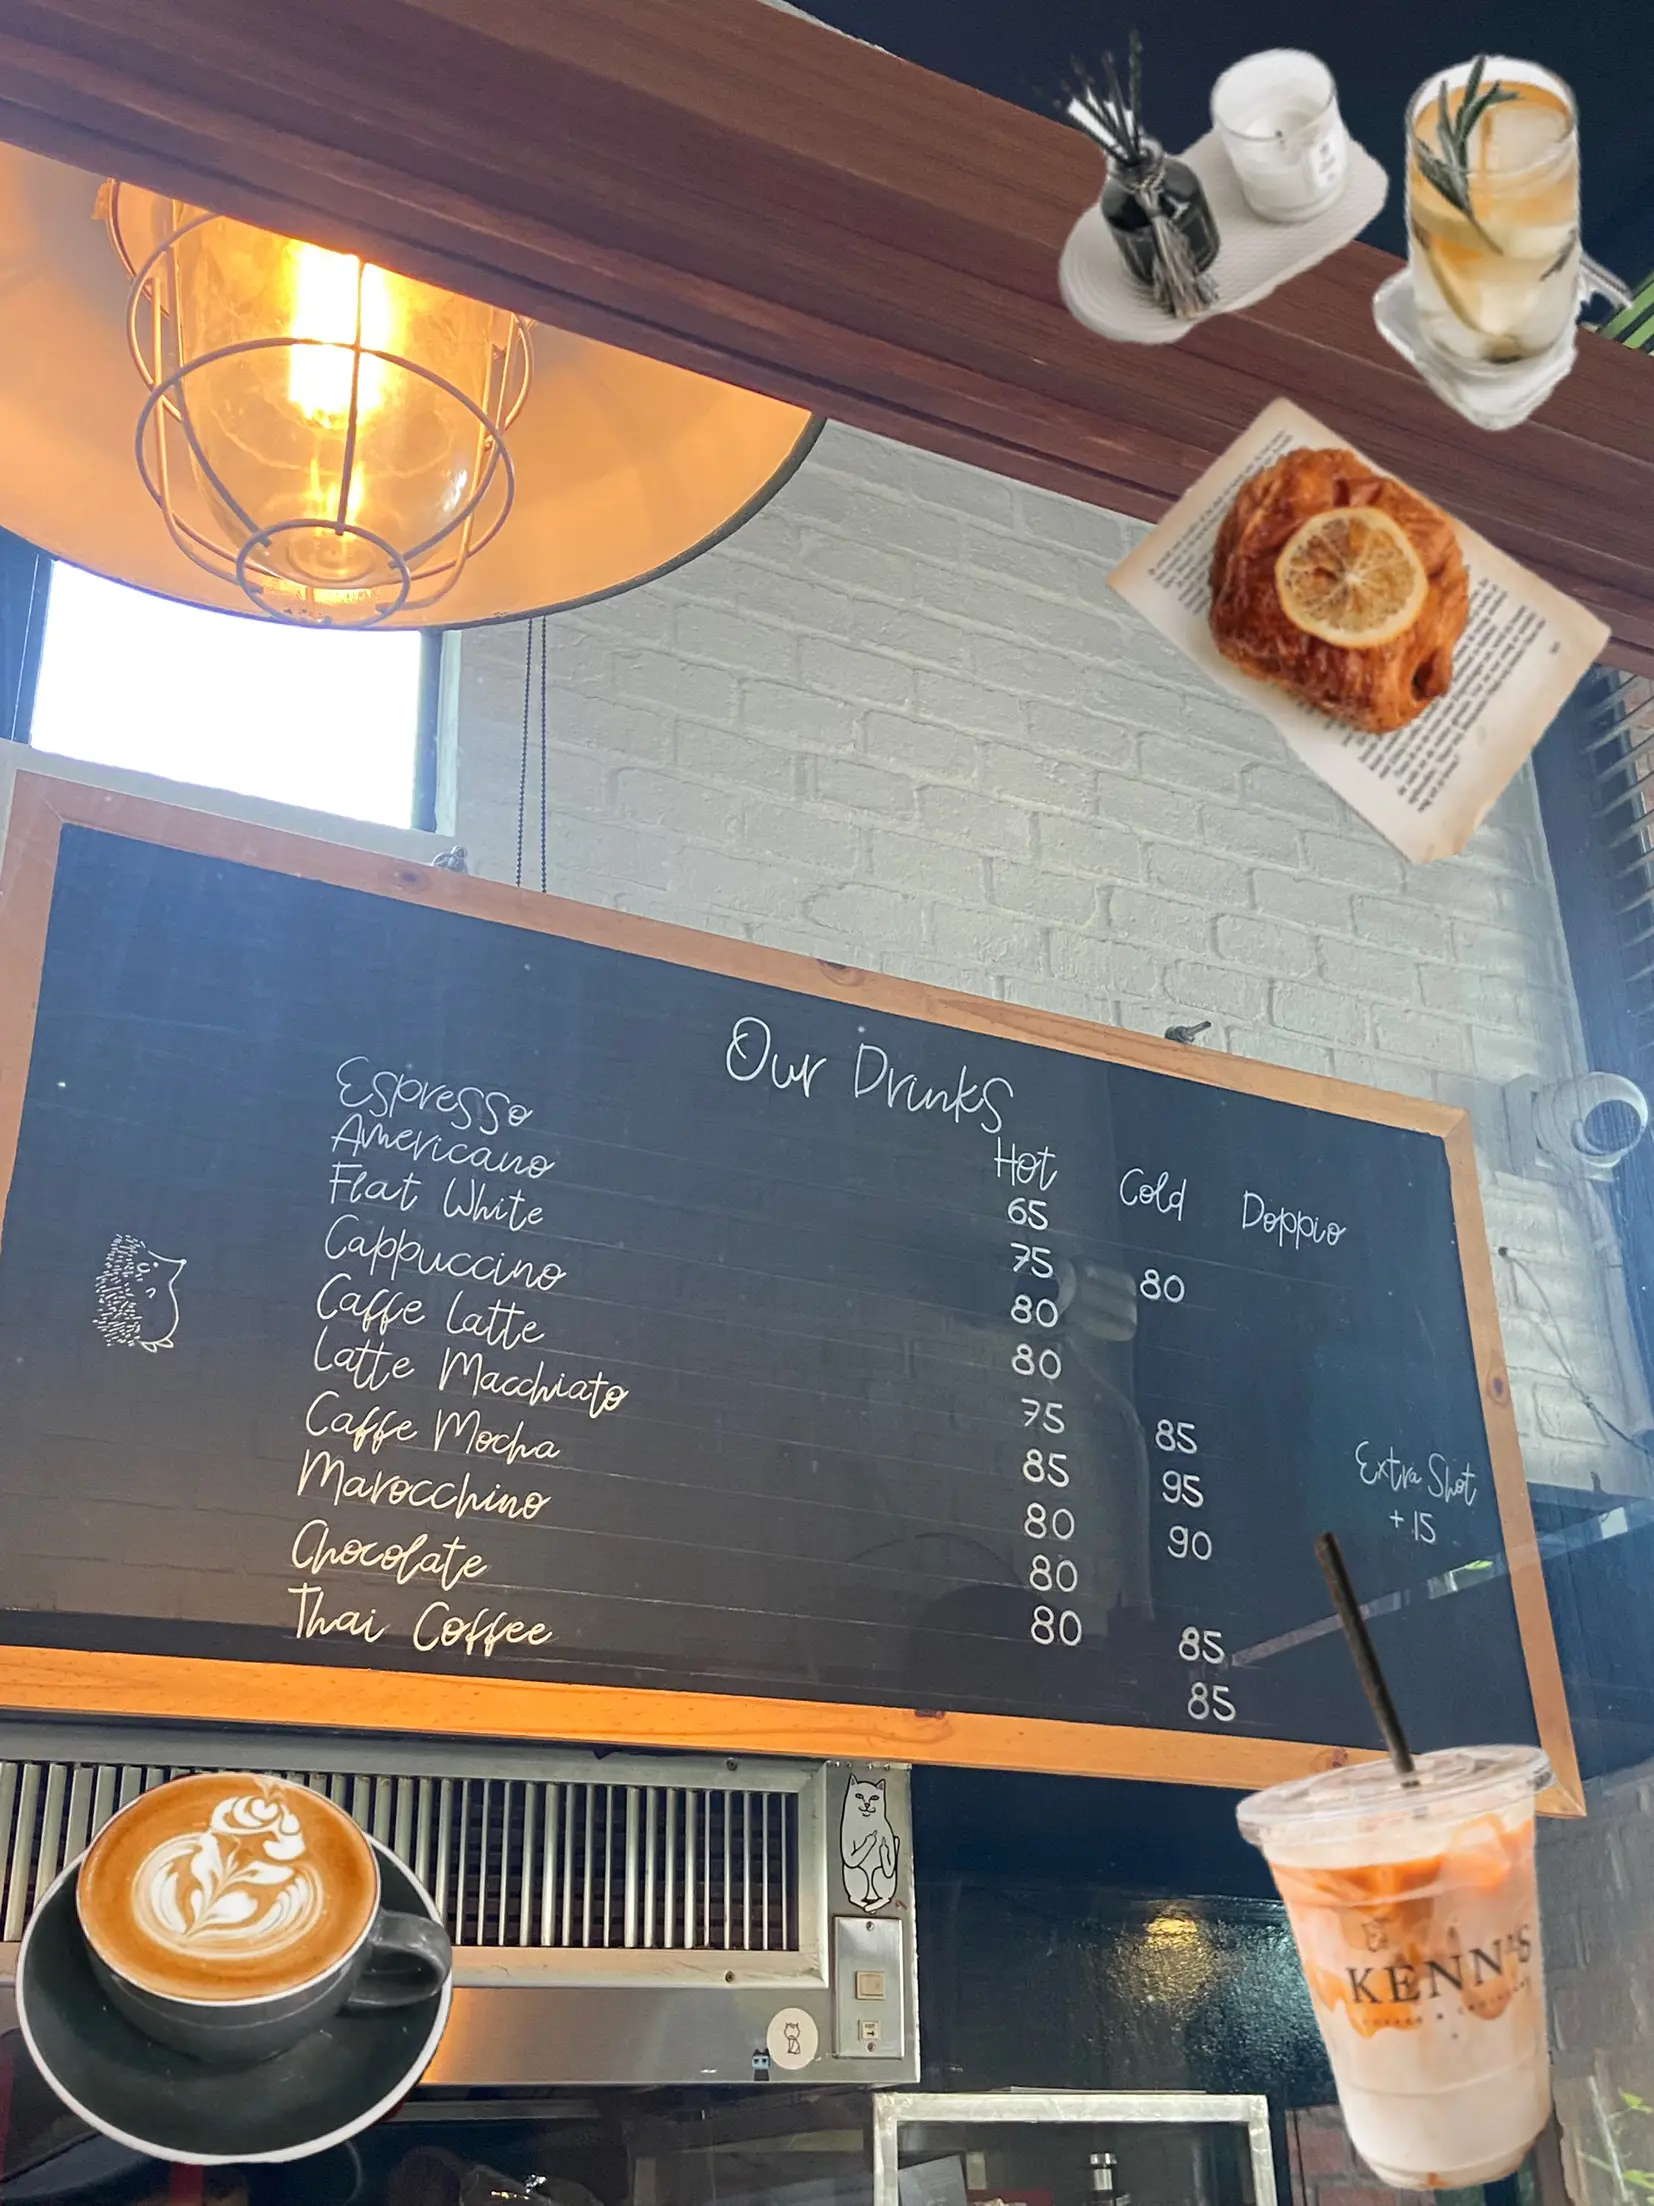 Our Drinks
Hot Cold Doppio
Espresso 65
Americano 75 80
Flat White 80
Cappuccino 80
Caffe Latte 75 85
Latte Macchiato 85 95
Caffe Mocha 80 90
Marocchino 80
Chocolate 80 85
Thai Coffee 85
Extra Shot
+15
KENN'S